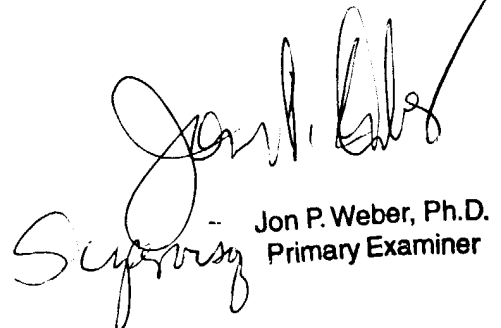 Jon P. Weber
Jon P. Weber, Ph.D.
Supervisory Primary Examiner